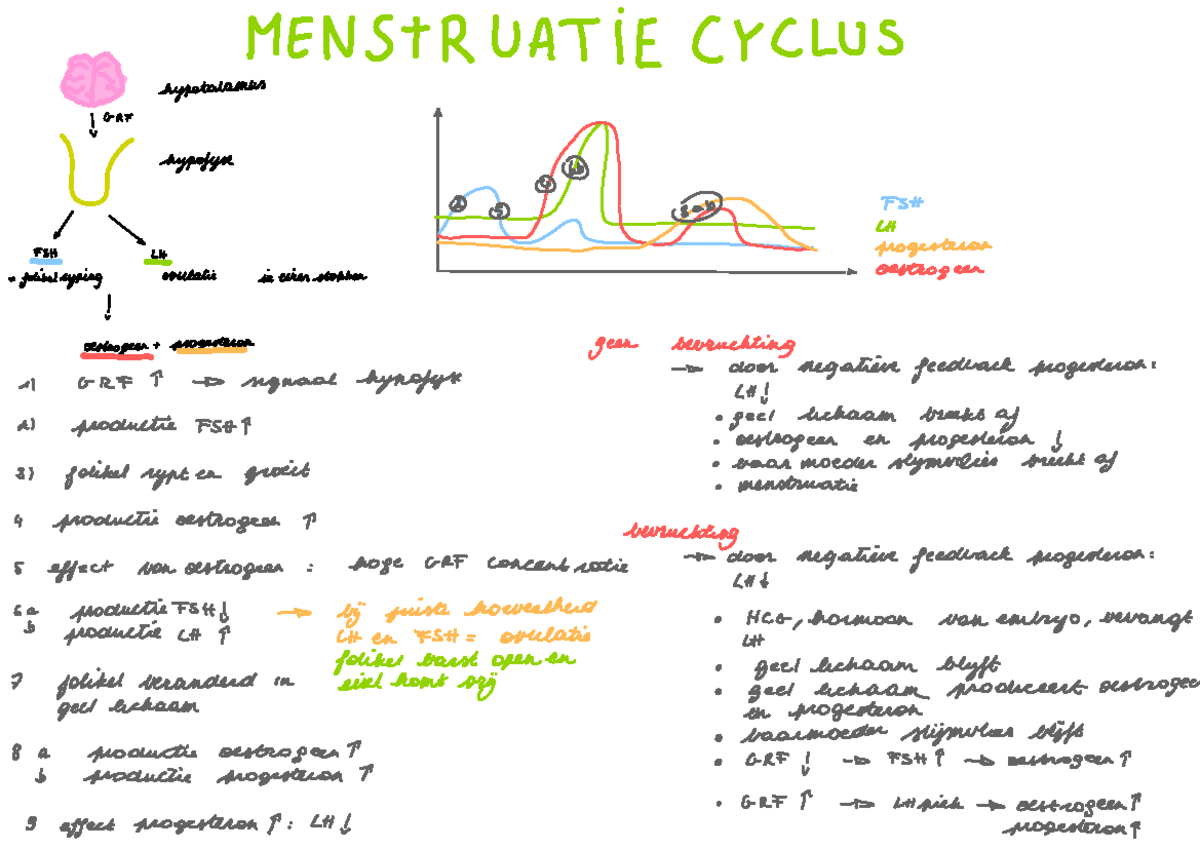 MENSTRUATIE CYCLUS
hypotalamus
GRF
hypofyse
FSH
LH
= folikel ryping
ovulatie
in eier stokken
oestrogeen + progesteron
2
5
4
6b
8 a b
FSH
LH
progesteron
oestrogeen
1) GRF ↑ → signaal hypofyse
2) productie FSH ↑
3) folikel rypt en groeit
4 productie oestrogeen ↑
5 effect van oestrogeen : hoge GRF concentratie
6 a productie FSH ↓
b productie LH ↑
→ bij juiste hoeveelheid
LH en FSH = ovulatie
folikel barst open en
eicel komt vrij
7 folikel veranderd in
geel lichaam
8 a productie oestrogeen ↑
b productie progesteron ↑
9 effect progesteron ↑ : LH ↓
geen bevruchting
→ door negatieve feedback progesteron :
LH ↓
• geel lichaam breekt af
• oestrogeen en progesteron ↓
• baar moeder slymvlies breekt af
• menstruatie
bevruchting
→ door negatieve feedback progesteron :
LH ↓
• HCG, hormoon van embryo, vervangt
LH
• geel lichaam blyft
• geel lichaam produceert oestrogee
en progesteron
• baarmoeder slijmvlies blijft
• GRF ↓ → FSH ↑ → oestrogeen ↑
• GRF ↑ → LH piek → oestrogeen ↑
progesteron ↑